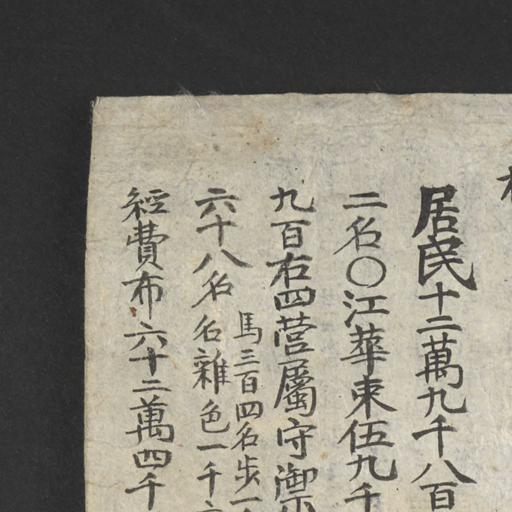 居民十二萬九千八百
二名〇江華束伍九千
九百右四營屬守禦
六十八名 馬三百四名步一
名雜色一千
經費布六十二萬四千